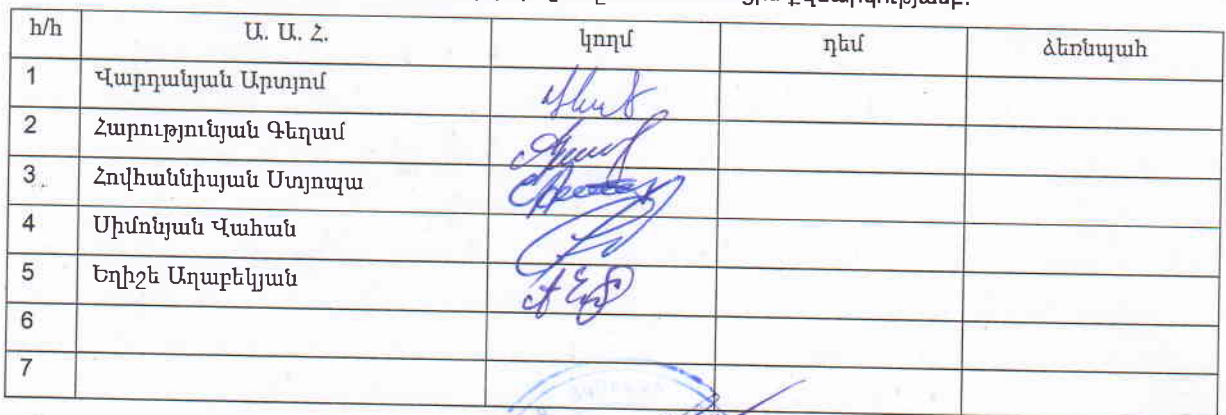 հ/հ Ա. Ա. Հ. կողմ դեմ ձեռնպահ
1 Վարդանյան Արտյոմ
2 Հարությունյան Գեղամ
3 Հովհաննիսյան Ստյոպա
4 Սիմոնյան Վահան
5 Եղիշե Աղաբեկյան
6
7